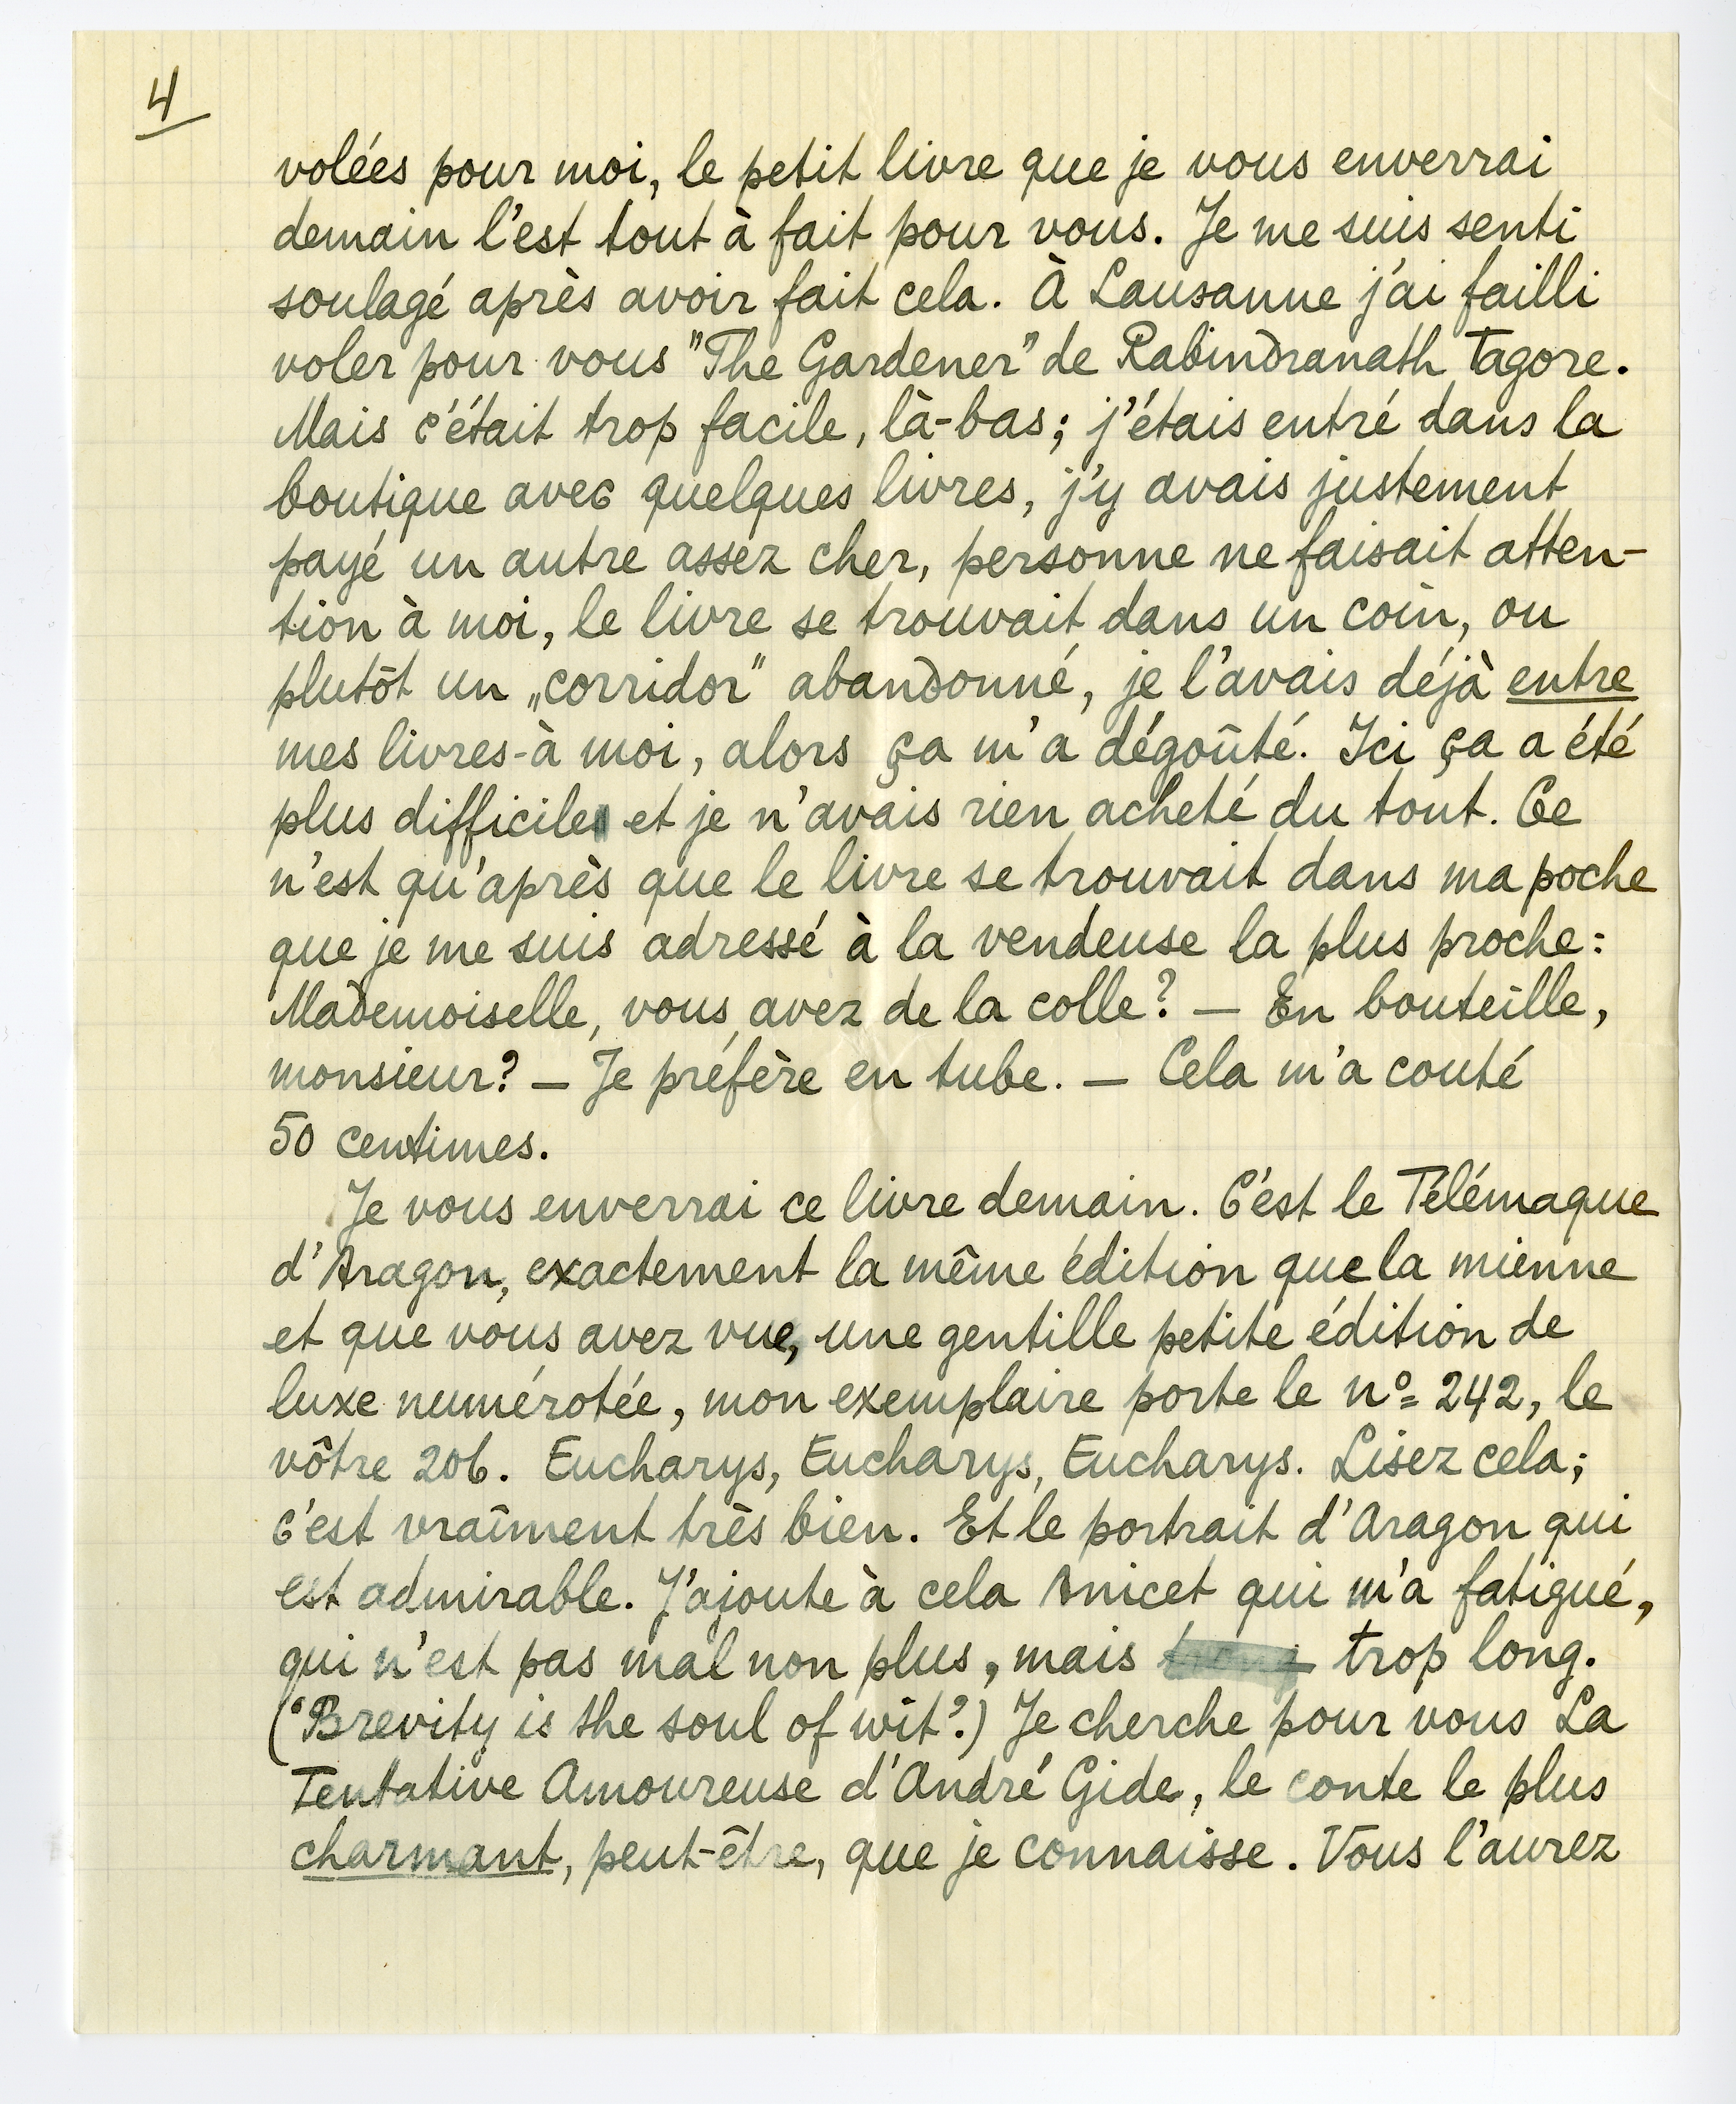 4
volées pour moi, le petit livre que je vous enverrai
demain l'est tout à fait pour vous. Je me suis senti
soulagé après avoir fait cela. À Lausanne j'ai failli
voler pour vous "The Gardener" de Rabindranath Tagore.
Mais c'était trop facile, là-bas; j'étais entré dans la
boutique avec quelques livres, j'y avais justement
payé un autre assez cher, personne ne faisait atten-
tion à moi, le livre se trouvait dans un coin, ou
plutôt un „corridor" abandonné, je l'avais déjà entre
mes livres-à moi, alors ça m'a dégoûté. Ici ça a été
plus difficile et je n'avais rien acheté du tout. Ce
n'est qu'après que le livre se trouvait dans ma poche
que je me suis adressé à la vendeuse la plus proche:
Mademoiselle, vous avez de la colle? — En bouteille,
monsieur? — Je préfère en tube. — Cela m'a couté
50 centimes.
Je vous enverrai ce livre demain. C'est le Télémaque
d'Aragon, exactement la même édition que la mienne
et que vous avez vue, une gentille petite édition de
luxe numérotée, mon exemplaire porte le nº 242, le
vôtre 206. Eucharys, Eucharys, Eucharys. Lisez cela;
c'est vraîment très bien. Et le portrait d'Aragon qui
est admirable. J'ajoute à cela Anicet qui m'a fatigué,
qui n'est pas mal non plus, mais trop long.
("Brevity is the soul of wit".) Je cherche pour vous La
Tentative Amoureuse d'André Gide, le conte le plus
charmant, peut-être, que je connaisse. Vous l'aurez